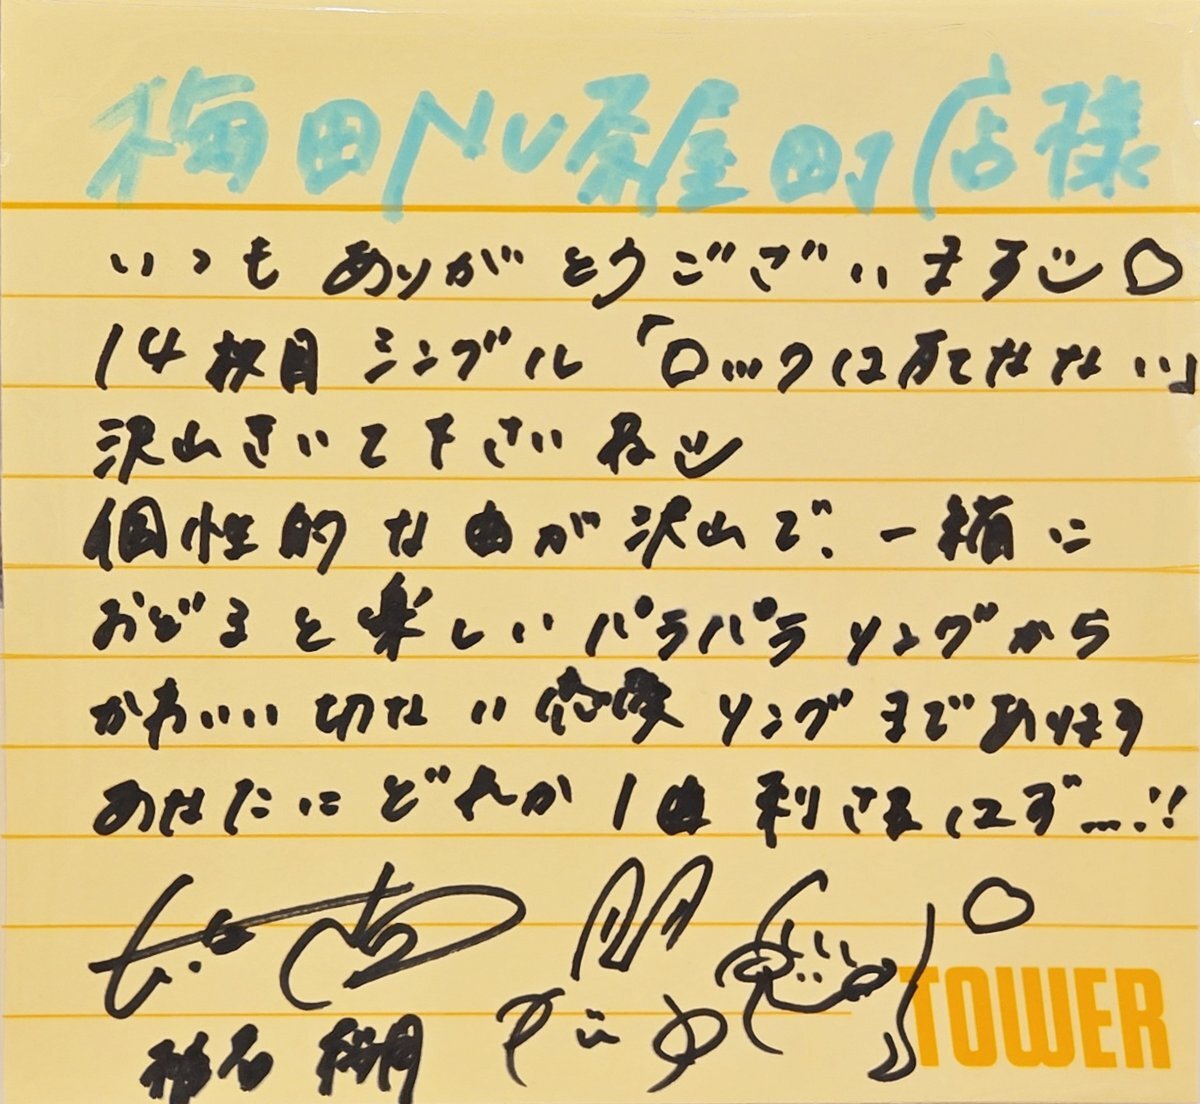 梅田NU茶屋町店様
いつもありがとうございます
14枚目シングル「ロックは死なない」
沢山きいて下さいね
個性的な曲が沢山で、一緒に
おどると楽しいパラパラソングから
かわいい切ない恋愛ソングまであります
あなたにどれか1曲刺さるはず…!!
桜月
TOWER